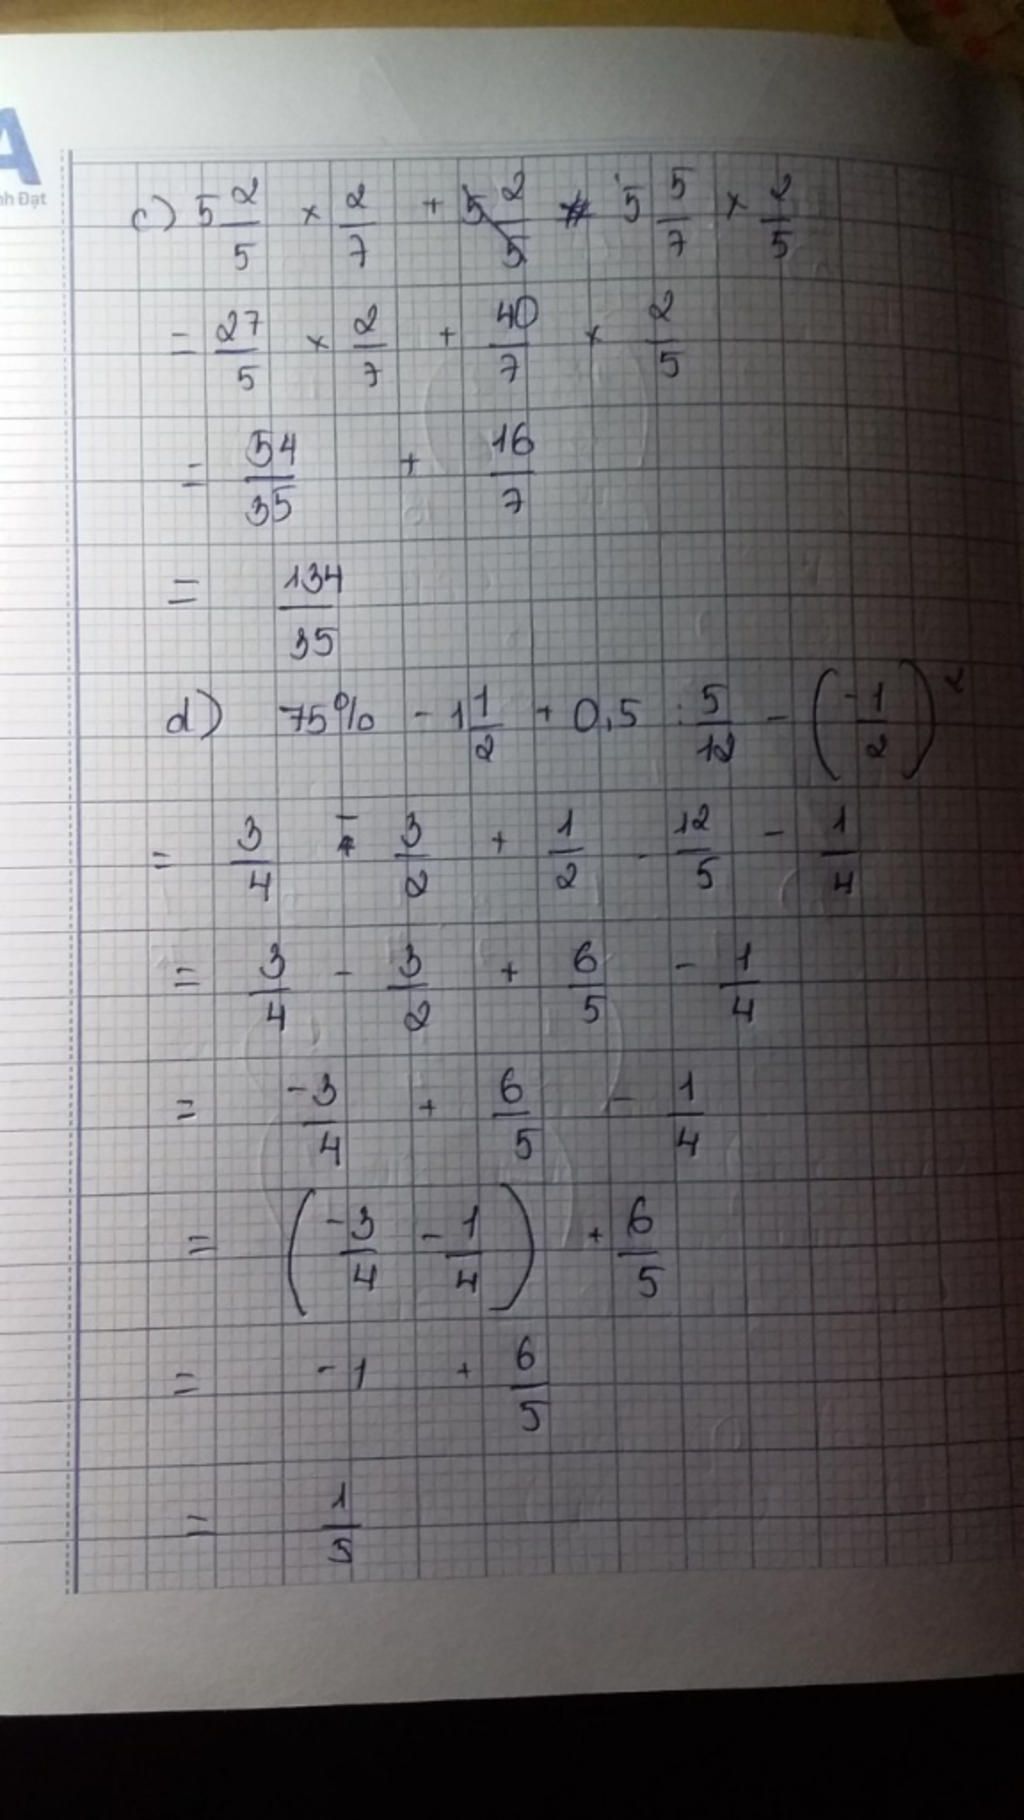 A
nh Đạt
c) 5 2/5 × 2/7 + 5 5/7 × 2/5
= 27/5 × 2/7 + 40/7 × 2/5
= 54/35 + 16/7
= 134/35
d) 75% - 1 1/2 + 0,5 : 5/12 - (-1/2)²
= 3/4 - 3/2 + 1/2 . 12/5 - 1/4
= 3/4 - 3/2 + 6/5 - 1/4
= -3/4 + 6/5 - 1/4
= (-3/4 - 1/4) + 6/5
= -1 + 6/5
= 1/5